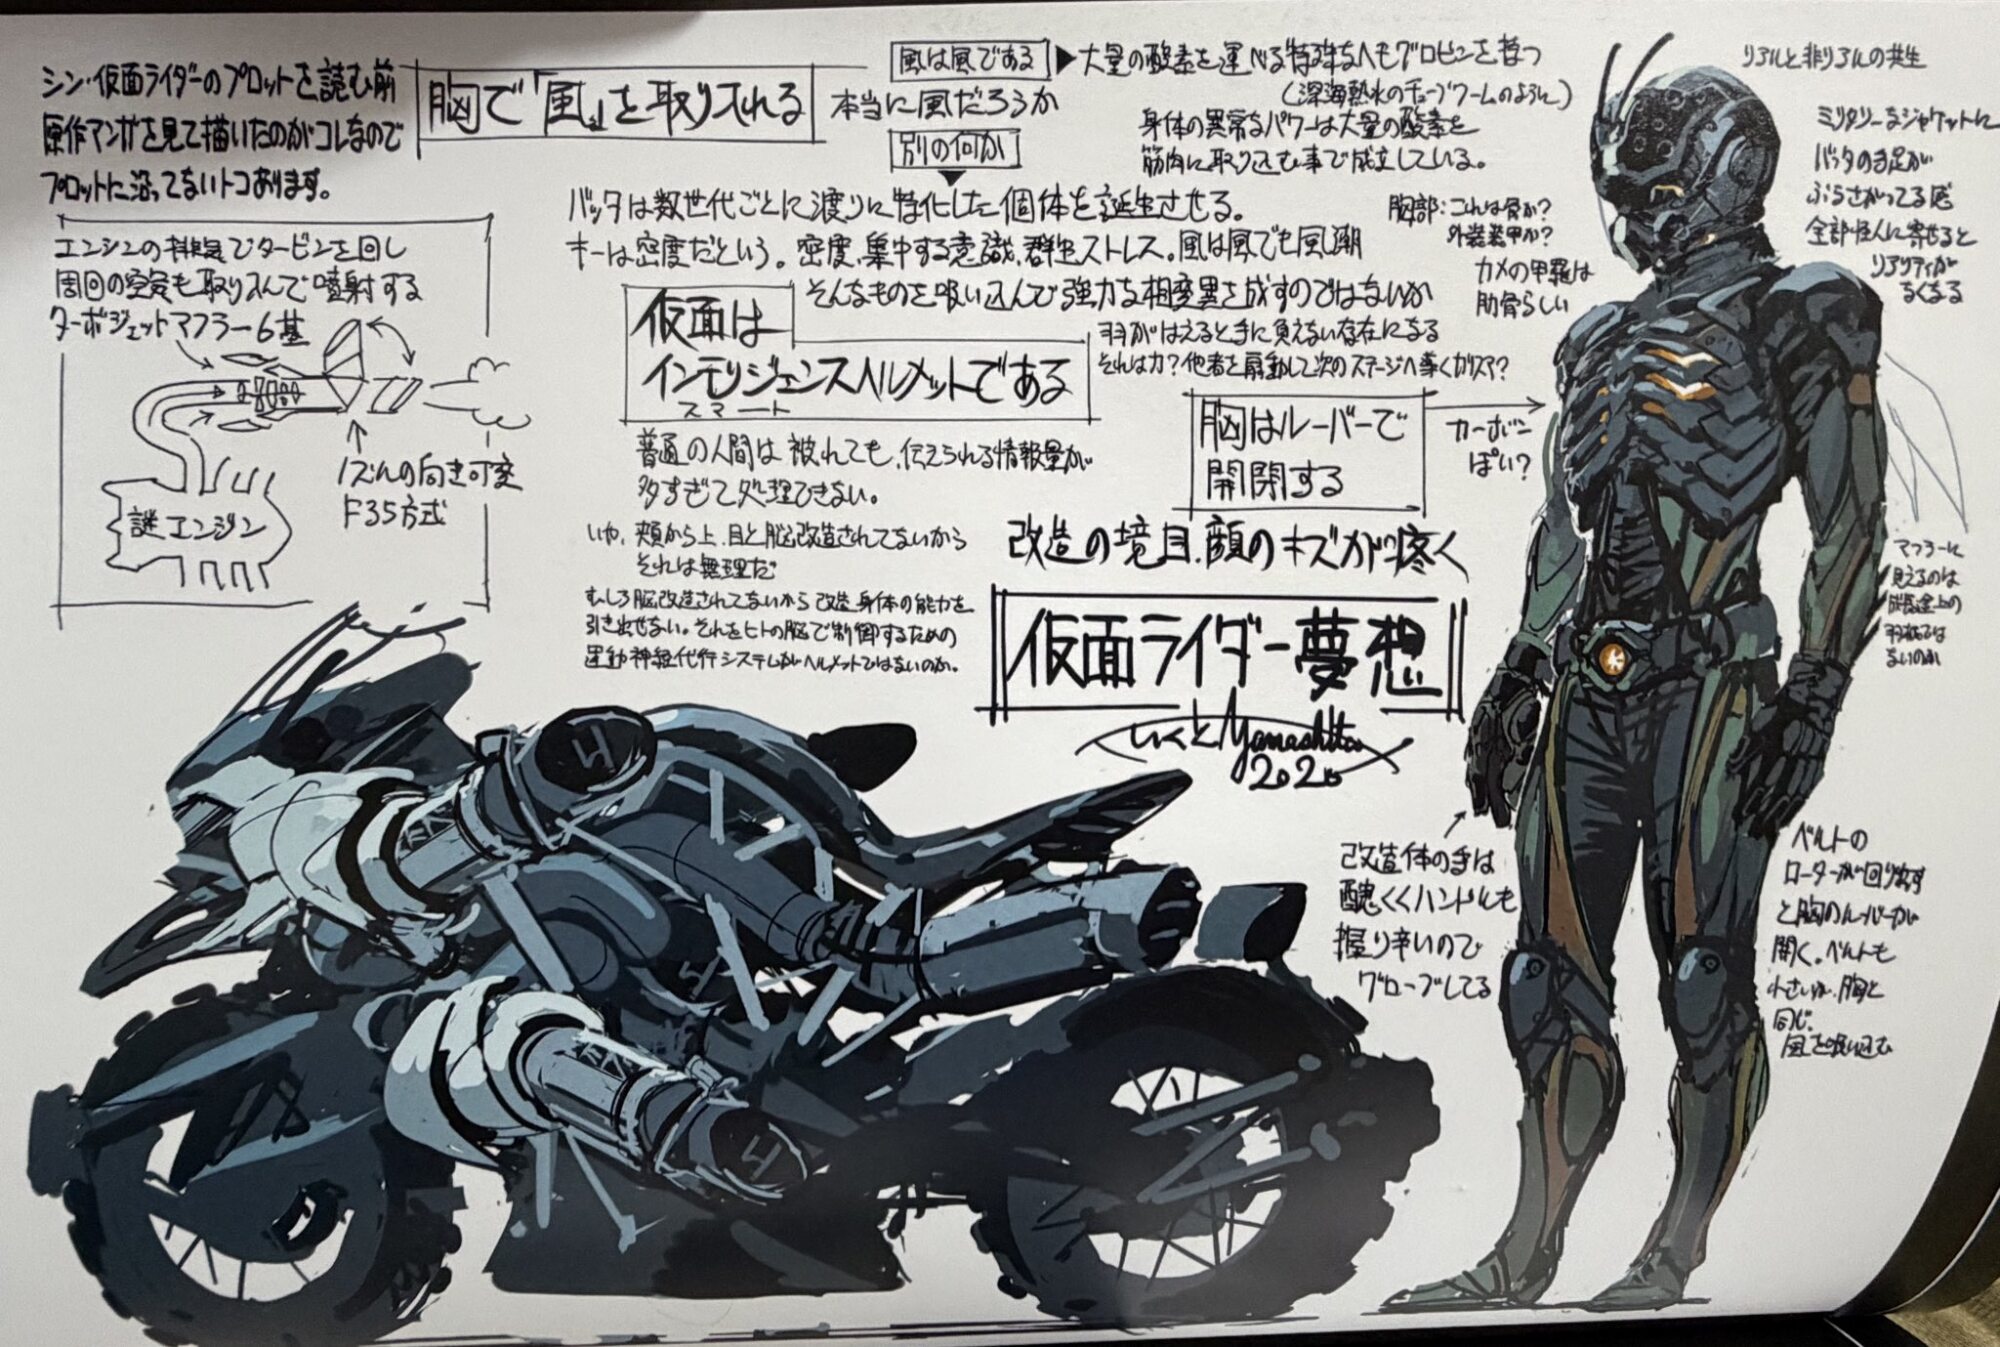 シン・仮面ライダーのプロットを読む前
原作マンガを見て描いたのがコレなので
プロットに沿ってないトコあります。
胸で「風」を取り入れる
風は風である
本当に風だろうか
別の何か
大量の酸素を運べる特殊なヘモグロビンを持つ
(深海熱水のチューブワームのように)
身体の異常なパワーは大量の酸素を
筋肉に取り込む事で成立している。
バッタは数世代ごとに渡りに特化した個体を誕生させる。
キーは密度だという。密度、集中する意識、群生ストレス。風は風でも風潮
そんなものを吸い込んで強力な相変異を成すのではないか
羽がはえると手に負えない存在になる
それは力?他者を扇動して次のステージへ導くカリスマ?
エンジンの排気でタービンを回し
周囲の空気も取り込んで噴射する
ターボジェットマフラー6基
ノズルの向き可変
F35方式
謎エンジン
仮面は
インテリジェンスヘルメットである
スマート
普通の人間は被れても、伝えられる情報量が
多すぎて処理できない。
いや、頬から上、目と脳は改造されてないから
それは無理だ
むしろ脳改造されてないから改造身体の能力を
引き出せない。それをヒトの脳で制御するための
運動神経代行システムがヘルメットではないのか。
胸はルーバーで
開閉する
カーボン
ぽい?
改造の境目、顔のキズが疼く
仮面ライダー夢想
いくと Yamashita
胸部:これは骨か?
外装装甲か?
カメの甲羅は
肋骨らしい
リアルと非リアルの共生
ミリタリーなジャケットに
バッタの手足が
ぶらさがってる感
全部怪人に寄せると
リアリティが
なくなる
マフラーに
見えるのは
成長途上の
羽根では
ないのか
改造体の手は
醜くくハンドルも
握り辛いので
グローブしてる
ベルトの
ローターが回り出す
と胸のルーバーが
開く。ベルトも
小さいが、胸と
同じ、
風を吸い込む